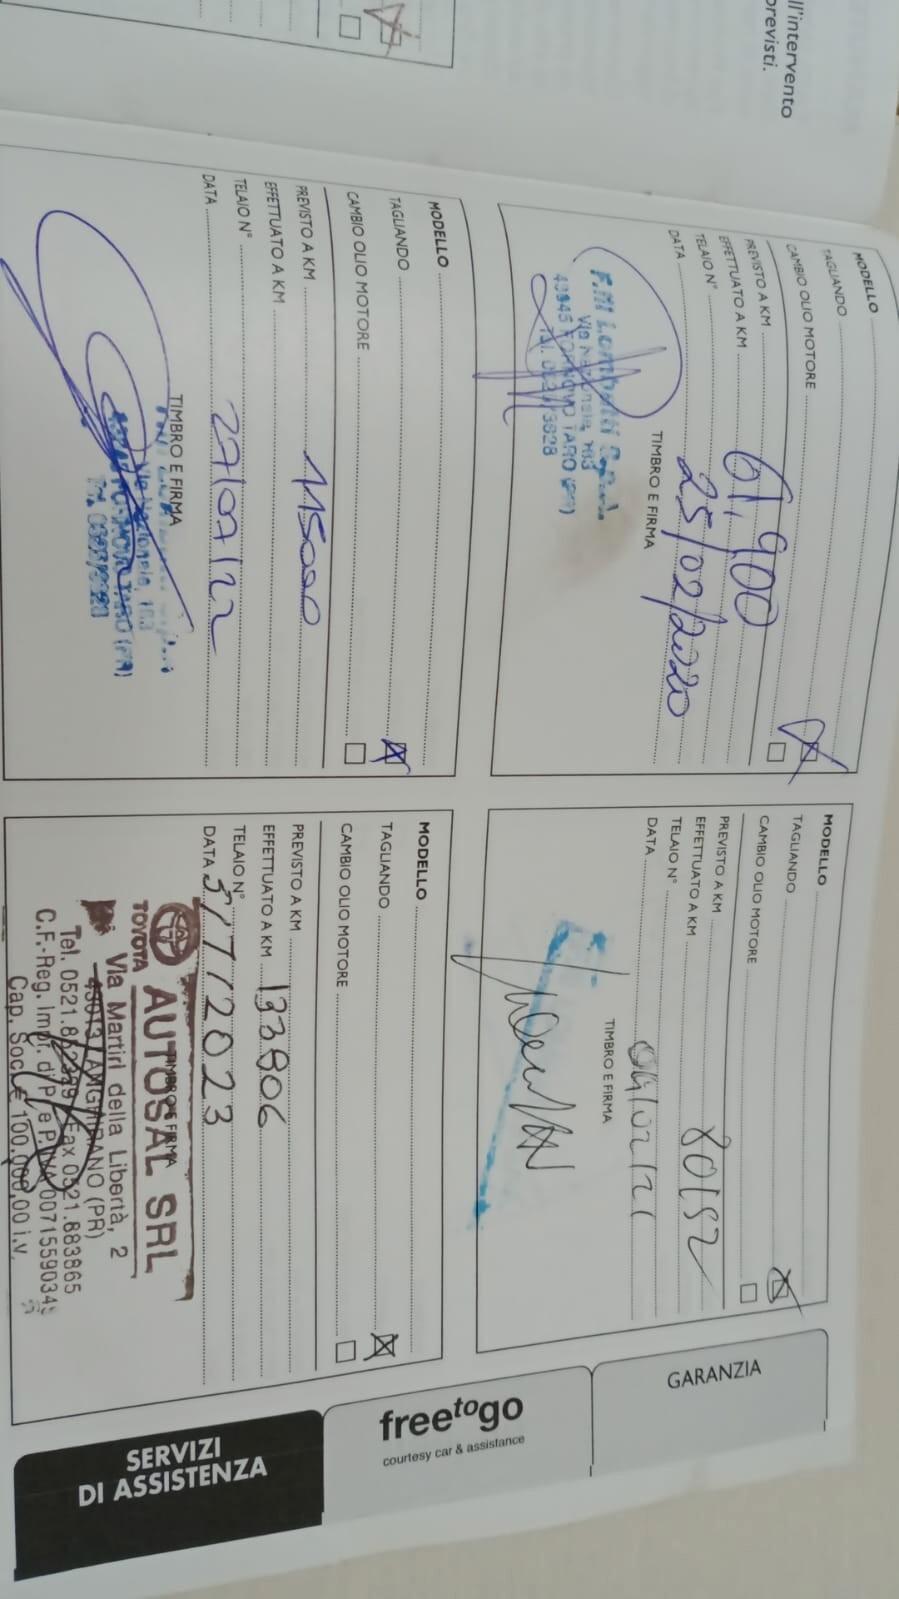 ll'intervento
previsti.
MODELLO
TAGLIANDO
CAMBIO OLIO MOTORE
PREVISTO A KM
EFFETTUATO A KM 61,900
TELAIO N°
DATA 25/02/2020
TIMBRO E FIRMA
F.lli
Via Nazionale, 103
FORNOVO TARO (PR)
MODELLO
TAGLIANDO
CAMBIO OLIO MOTORE
PREVISTO A KM
EFFETTUATO A KM 80152
TELAIO N°
DATA 04/02/21
TIMBRO E FIRMA
MODELLO
TAGLIANDO
CAMBIO OLIO MOTORE
PREVISTO A KM 115000
EFFETTUATO A KM
TELAIO N°
DATA
TIMBRO E FIRMA
Via Nazionale, 103
TARO (PR)
MODELLO
TAGLIANDO
CAMBIO OLIO MOTORE
PREVISTO A KM
EFFETTUATO A KM 133806
TELAIO N°
DATA 5/7/2023
TIMBRO E FIRMA
TOYOTA
AUTOSAL SRL
Via Martiri della Libertà, 2
43013 LANGHIRANO (PR)
Fax 0521.863865
C.F.-Reg. Impr. di PR e P.IVA
Cap. Soc. € 100.000,00 i.v.
GARANZIA
freetogo
courtesy car & assistance
SERVIZI
DI ASSISTENZA